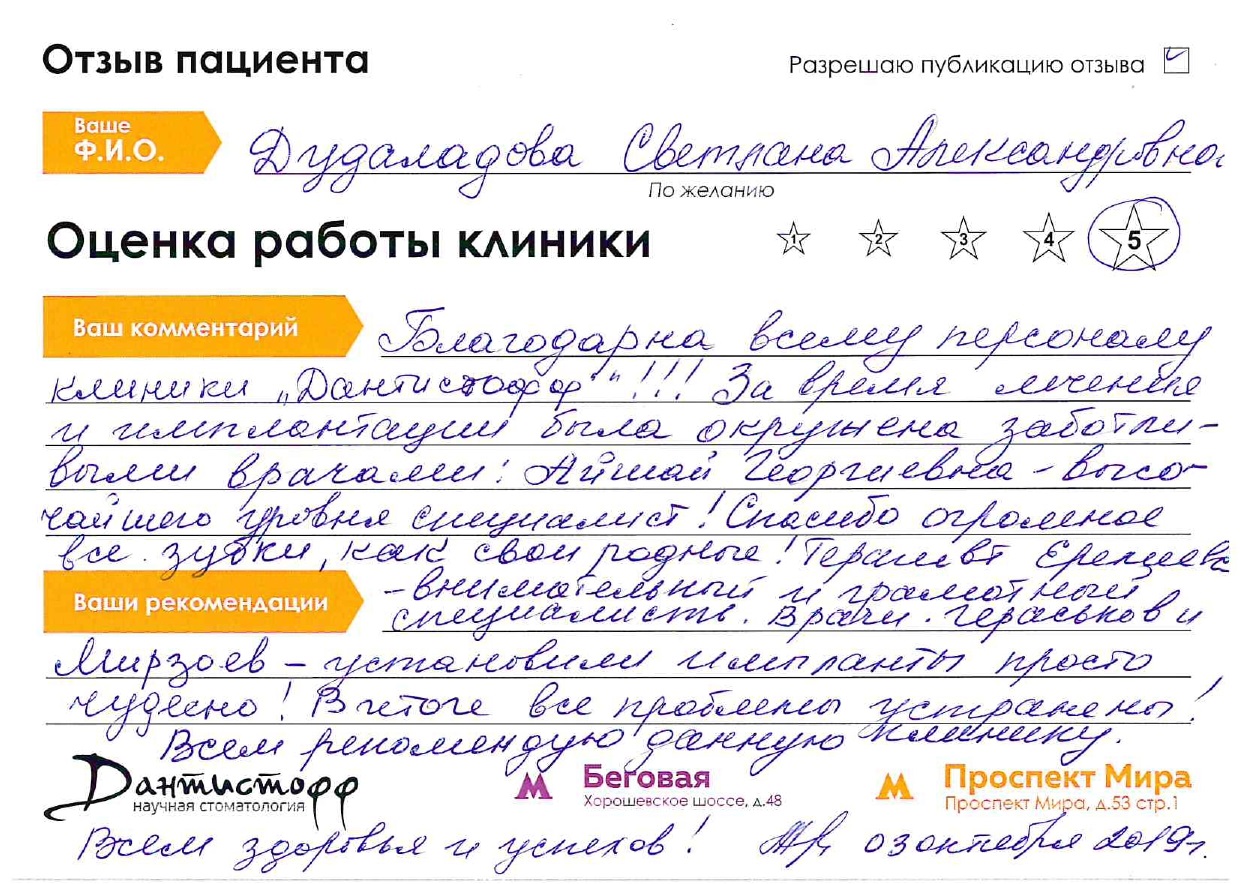 Отзыв пациента
Разрешаю публикацию отзыва
Ваше
Ф.И.О.
Дудаладова Светлана Александровна
По желанию
Оценка работы клиники
1 2 3 4 5
Ваш комментарий
Благодарна всему персоналу
клиники „Дантистофф“!!! За время лечения
и имплантации была окружена заботли-
выми врачами: Айшай Георгиевна - высо-
чайшего уровня специалист! Спасибо огромное
все зубки, как свои родные! Терапевт
Ваши рекомендации
- внимательный и грамотный
специалист. Врачи Гераськов и
Мирзоев - установили импланты просто
чудесно! В итоге все проблемы устранены!
Всем рекомендую данную клинику.
Дантистофф
научная стоматология
М Беговая
Хорошевское шоссе, д.48
М Проспект Мира
Проспект Мира, д.53 стр.1
Всем здоровья и успехов! 03 октября 2019г.